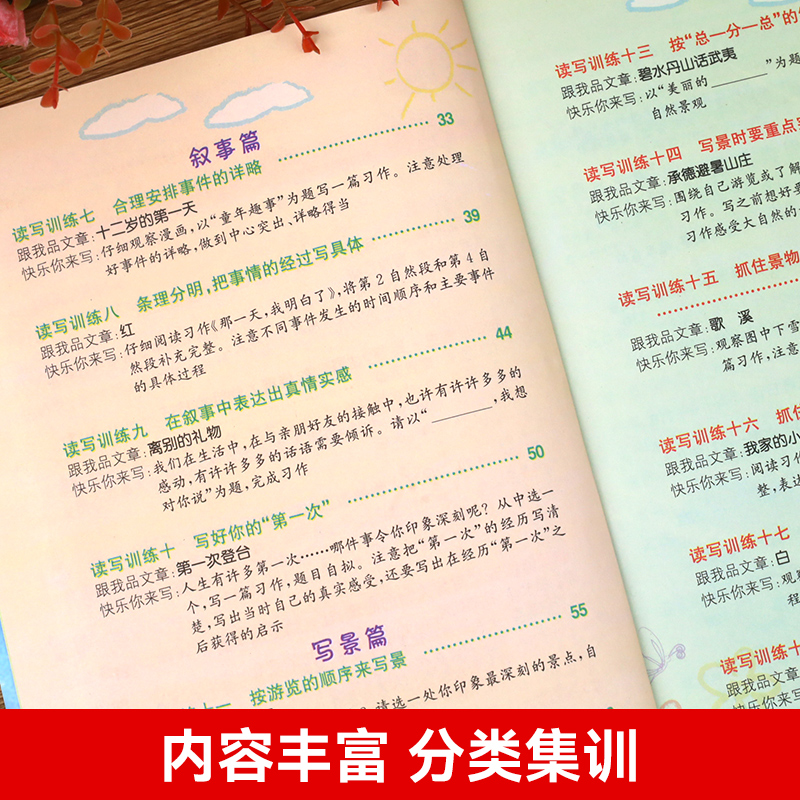 叙事篇
读写训练七 合理安排事件的详略 33
跟我品文章:十二岁的第一天
快乐你来写:仔细观察漫画,以“童年趣事”为题写一篇习作。注意处理
好事件的详略,做到中心突出、详略得当
读写训练八 条理分明,把事情的经过写具体 39
跟我品文章:红
快乐你来写:仔细阅读习作《那一天,我明白了》,将第2自然段和第4自
然段补充完整。注意不同事件发生的时间顺序和主要事件
的具体过程
读写训练九 在叙事中表达出真情实感 44
跟我品文章:离别的礼物
快乐你来写:我们在生活中,在与亲朋好友的接触中,也许有许许多多的
感动,有许许多多的话语需要倾诉。请以“______,我想
对你说”为题,完成习作
读写训练十 写好你的“第一次” 50
跟我品文章:第一次登台
快乐你来写:人生有许多第一次……哪件事令你印象深刻呢?从中选一
个,写一篇习作,题目自拟。注意把“第一次”的经历写清
楚,写出当时自己的真实感受,还要写出在经历“第一次”之
后获得的启示
写景篇
十一 按游览的顺序来写景 55
请选一处你印象最深刻的景点,自
读写训练十三 按“总—分—总”的
跟我品文章:碧水丹山话武夷
快乐你来写:以“美丽的______”为题
自然景观
读写训练十四 写景时要重点突
跟我品文章:承德避暑山庄
快乐你来写:围绕自己游览或了解
习作。写之前想好要
习作感受大自然的
读写训练十五 抓住景物
跟我品文章:歌 溪
快乐你来写:观察图中下雪
篇习作,注意
读写训练十六 抓住
跟我品文章:我家的小
快乐你来写:阅读习作
整,表达
读写训练十七
跟我品文章:白
快乐你来写:观察
程
读写训练十
跟我品文章
快乐你来写
内容丰富 分类集训